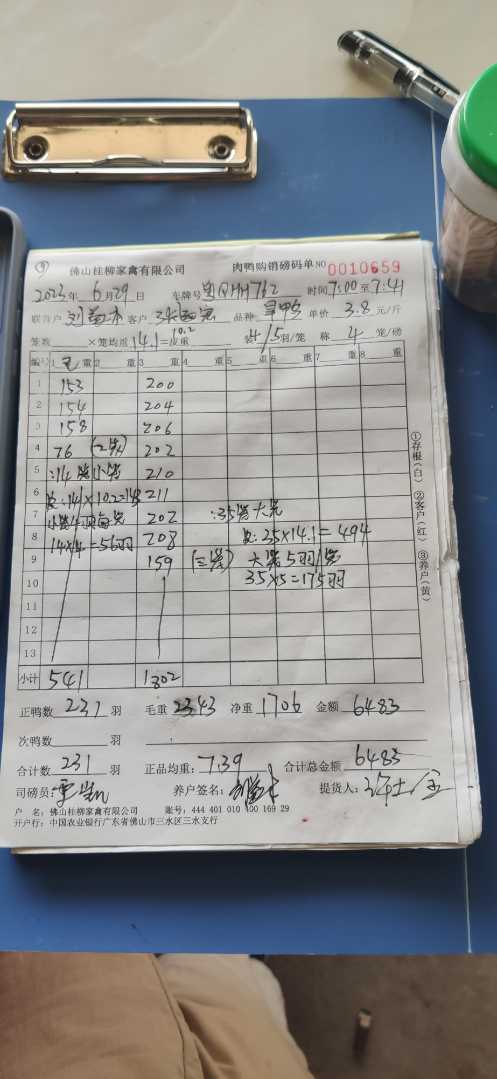 ⑨ 佛山桂柳家禽有限公司 肉鸭购销磅码单 NO 0010659
2023年 6月29日 车牌号 时间 7:00至7:41
联营户 客户 品种 单价 3.8 元/斤
笼数 ×笼均重 14.1=皮重 10.2 装 4/5 羽/笼 称 4 笼/磅
编号 1 毛重 2 重 3 重 4 重 5 重 6 重 7 重 8 重
1 153 200
2 154 204
3 158 206
4 76 202
5 210
6 14×10.2=143 211
7 202 35笼大笼
8 14×4=56羽 208 35×14.1=494
9 159 大笼5羽/笼
10 35×5=175羽
11
12
13
小计 541 1802
正鸭数 231 羽 毛重 2343 净重 1706 金额 6483
次鸭数 羽
合计数 231 羽 正品均重: 7.39 合计总金额 6483
司磅员: 养户签名: 提货人:
户 名: 佛山桂柳家禽有限公司 账号: 444 401 010 400 169 29
开户行: 中国农业银行广东省佛山市三水区三水支行
①存根(白) ②客户(红) ③养户(黄)